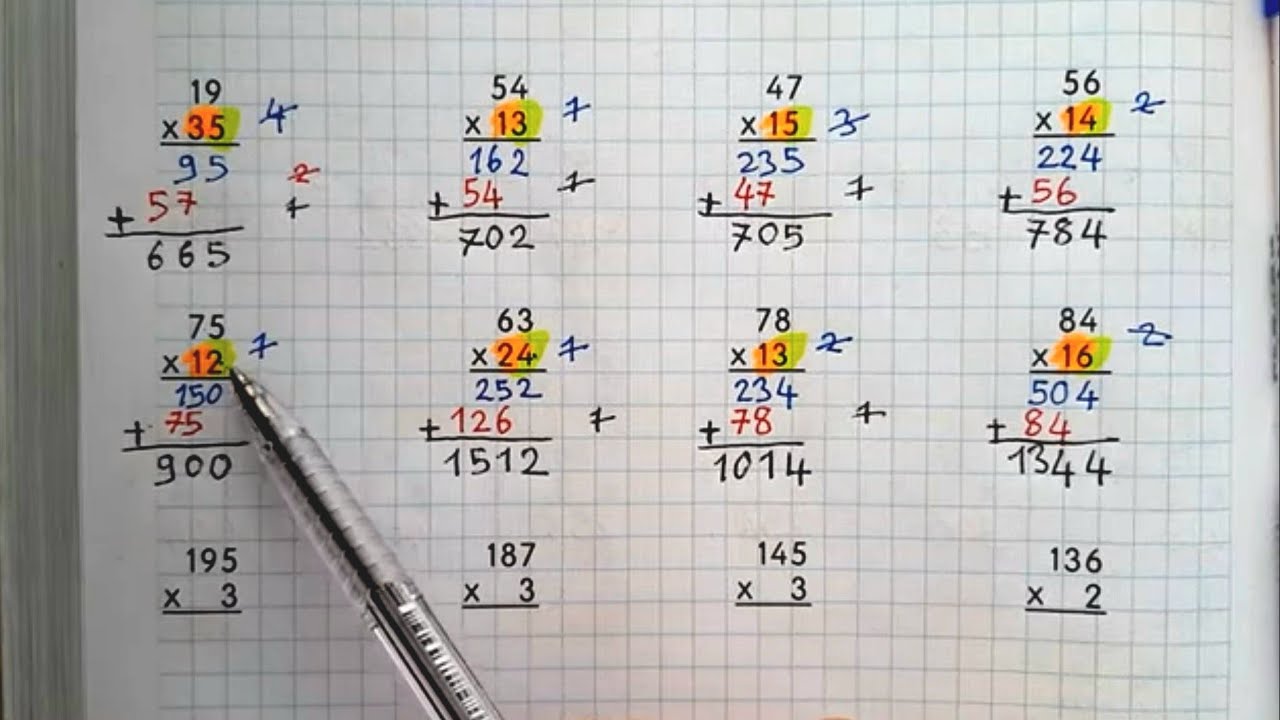 19 54 47 56
x 35 4 x 13 1 x 15 3 x 14 2
95 162 235 224
+ 57 2 1 + 54 1 + 47 1 + 56
665 702 705 784
75 63 78 84
x 12 1 x 24 1 x 13 2 x 16 2
150 252 234 504
+ 75 + 126 1 + 78 1 + 84
900 1512 1014 1344
195 187 145 136
x 3 x 3 x 3 x 2